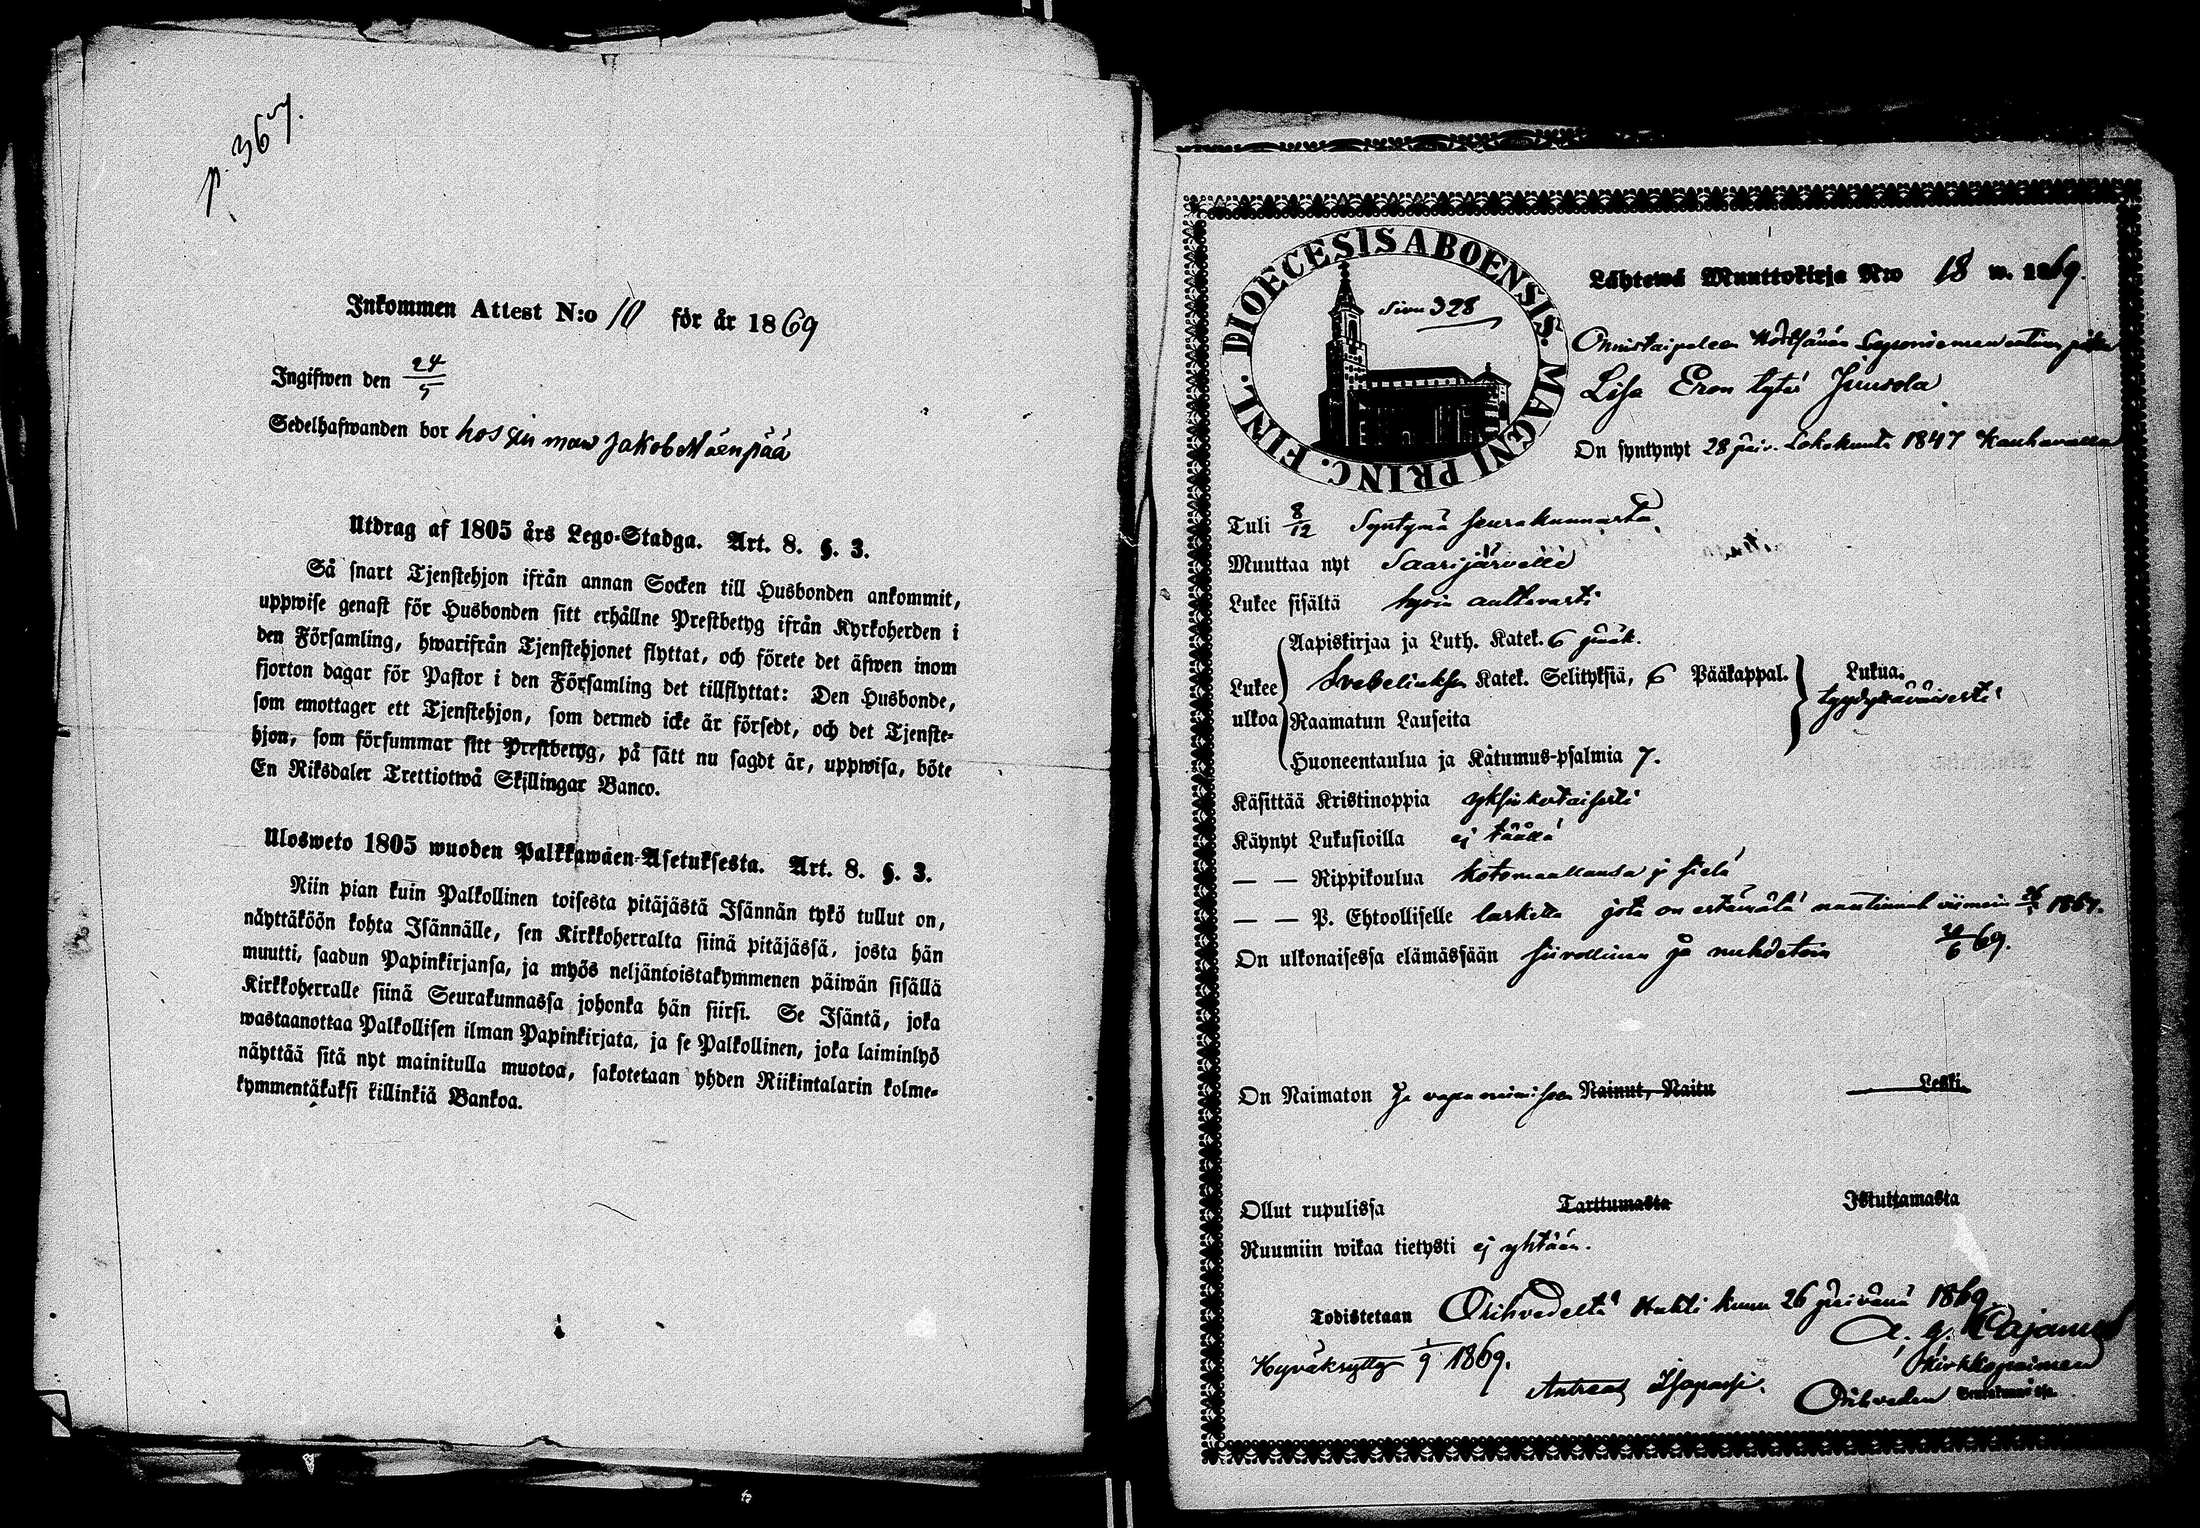 p. 367.
Inkommen Attest N:o 10 för år 1869
Ingifwen den 24/5
Sedelhafwanden bor hos sin mow Jakob Mäenpää
Utdrag af 1805 års Lego-Stadga. Art. 8. §. 3.
Så snart Tjenstehjon ifrån annan Socken till Husbonden ankommit,
uppwise genast för Husbonden sitt erhållne Prestbetyg ifrån Kyrkoherden i
den Församling, hwarifrån Tjenstehjonet flyttat, och förete det äfwen inom
fjorton dagar för Pastor i den Församling det tillflyttat: Den Husbonde,
som emottager ett Tjenstehjon, som dermed icke är försedt, och det Tjenste-
hjon, som försummar sitt Prestbetyg, på sätt nu sagdt är, uppwisa, böte
En Riksdaler Trettiotwå Skillingar Banco.
Ulosweto 1805 wuoden Palkkawäen-Asetuksesta. Art. 8. §. 3.
Niin pian kuin Palkollinen toisesta pitäjästä Isännän tykö tullut on,
näyttäköön kohta Isännälle, sen Kirkkoherralta siinä pitäjässä, josta hän
muutti, saadun Papinkirjansa, ja myös neljäntoistakymmenen päiwän sisällä
Kirkkoherralle siinä Seurakunnassa johonka hän siirsi. Se Isäntä, joka
wastaanottaa Palkollisen ilman Papinkirjata, ja se Palkollinen, joka laiminlyö
näyttää sitä nyt mainitulla muotoa, sakotetaan yhden Riikintalarin kolme-
kymmentäkaksi killinkiä Bankoa.
DIOECESIS ABOENSIS. MAGNI PRINC. FINL.
Sivu 328
Lähtewä Muuttokirja N:o 18 w. 1869.
Onnistaipaleen
Lisa Eron tytär Juusola
On syntynyt 28 päiv. Lokakuuta 1847 Kauhavalla
Tuli 8/12 Syntymä seurakunnasta
Muuttaa nyt Saarijärvelle
Lukee sisältä hyvin auttavasti
Aapiskirjaa ja Luth. Katek. 6 pääk.
Lukee ulkoa Svebeliuksen Katek. Selityksiä, 6 Pääkappal. Lukua.
tyydyttäväisesti
Raamatun Lauseita
Huoneentaulua ja Katumus-psalmia 7.
Käsittää Kristinoppia yksinkertaisesti
Käynyt Lukusioilla ej täällä
— — Rippikoulua kotomaallansa ja sielä
— — P. Ehtoolliselle laskettu jota on nautinnut viimein 1867.
On ulkonaisessa elämässään siivollinen ja nuhdetoin 20/6 69.
On Naimaton Ja vapa naimiseen Nainut, Naitu Leski.
Ollut rupulissa Tarttumasta Istuttamasta
Ruumiin wikaa tietysti ej yhtään.
Todistetaan Orihvedeltä Huhti kuun 26 päivänä 1869
A. G. Cajanus
Kirkkopaimen
Hyväksytty 1/9 1869.
Antreas Isopassi.
Orihveden Seurakunnassa.